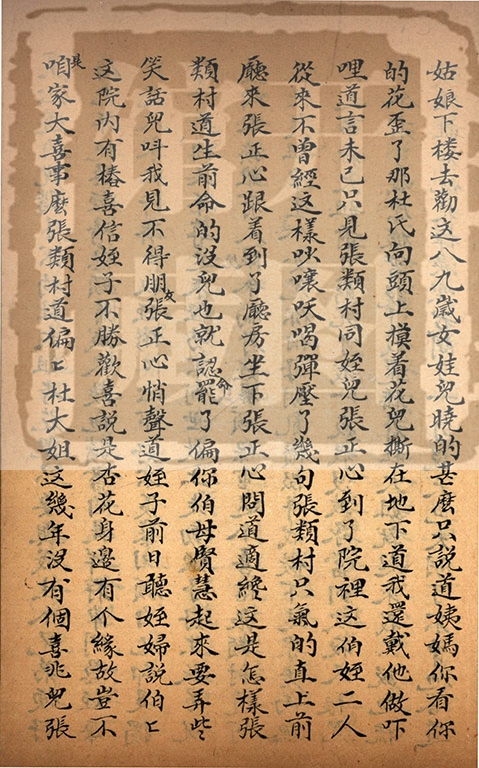 姑娘下楼去勸这八九歲女娃兒曉的甚麽只説道姨媽你看你
的花歪了那杜氏向頭上摸着花兒撕在地下道我還戴他做吓
哩道言未已只見張類村同姪兒張正心到了院裡这伯姪二人
從來不曾經这樣吵嚷吆喝彈壓了幾句張類村只氣的直上前
廳來張正心跟着到了廳房坐下張正心問道適纔这是怎樣張
類村道生前命的没兒也就認命罷了偏你伯母賢慧起來要弄些
笑話兒叫我見不得朋友張正心悄聲道姪子前日聽姪婦説伯〻
这院内有樁喜信姪子不勝歡喜説是杏花身邊有个緣故豈不
是咱家大喜事麽張類村道偏〻杜大姐这幾年没有個喜兆兒張